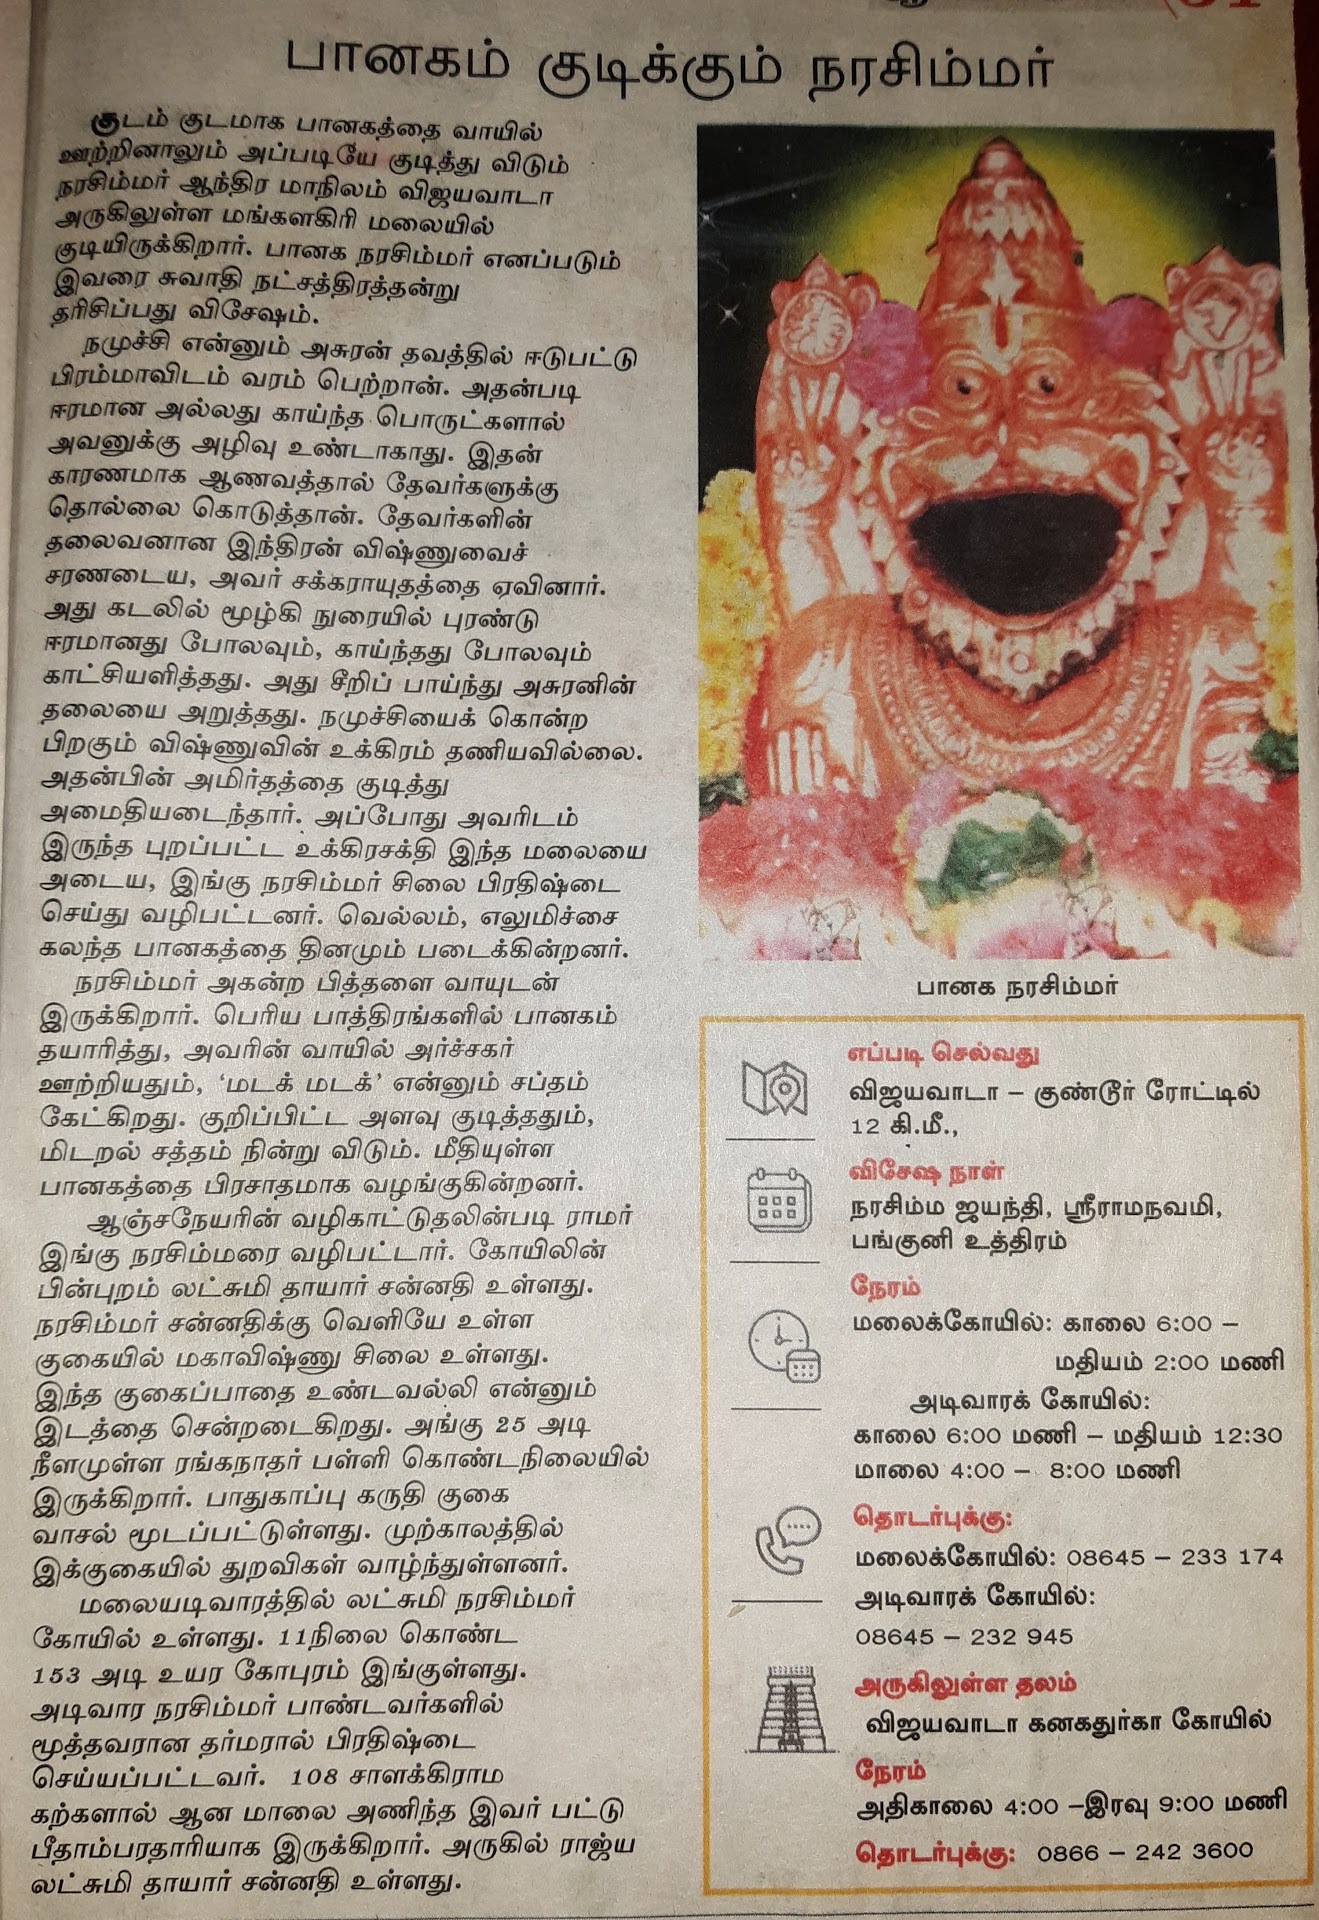 பானகம் குடிக்கும் நரசிம்மர்
குடம் குடமாக பானகத்தை வாயில்
ஊற்றினாலும் அப்படியே குடித்து விடும்
நரசிம்மர் ஆந்திர மாநிலம் விஜயவாடா
அருகிலுள்ள மங்களகிரி மலையில்
குடியிருக்கிறார். பானக நரசிம்மர் எனப்படும்
இவரை சுவாதி நட்சத்திரத்தன்று
தரிசிப்பது விசேஷம்.
நமுச்சி என்னும் அசுரன் தவத்தில் ஈடுபட்டு
பிரம்மாவிடம் வரம் பெற்றான். அதன்படி
ஈரமான அல்லது காய்ந்த பொருட்களால்
அவனுக்கு அழிவு உண்டாகாது. இதன்
காரணமாக ஆணவத்தால் தேவர்களுக்கு
தொல்லை கொடுத்தான். தேவர்களின்
தலைவனான இந்திரன் விஷ்ணுவைச்
சரணடைய, அவர் சக்கராயுதத்தை ஏவினார்.
அது கடலில் மூழ்கி நுரையில் புரண்டு
ஈரமானது போலவும், காய்ந்தது போலவும்
காட்சியளித்தது. அது சீறிப் பாய்ந்து அசுரனின்
தலையை அறுத்தது. நமுச்சியைக் கொன்ற
பிறகும் விஷ்ணுவின் உக்கிரம் தணியவில்லை.
அதன்பின் அமிர்தத்தை குடித்து
அமைதியடைந்தார். அப்போது அவரிடம்
இருந்த புறப்பட்ட உக்கிரசக்தி இந்த மலையை
அடைய, இங்கு நரசிம்மர் சிலை பிரதிஷ்டை
செய்து வழிபட்டனர். வெல்லம், எலுமிச்சை
கலந்த பானகத்தை தினமும் படைக்கின்றனர்.
நரசிம்மர் அகன்ற பித்தளை வாயுடன்
இருக்கிறார். பெரிய பாத்திரங்களில் பானகம்
தயாரித்து, அவரின் வாயில் அர்ச்சகர்
ஊற்றியதும், ‘மடக் மடக்’ என்னும் சப்தம்
கேட்கிறது. குறிப்பிட்ட அளவு குடித்ததும்,
மிடறல் சத்தம் நின்று விடும். மீதியுள்ள
பானகத்தை பிரசாதமாக வழங்குகின்றனர்.
ஆஞ்சநேயரின் வழிகாட்டுதலின்படி ராமர்
இங்கு நரசிம்மரை வழிபட்டார். கோயிலின்
பின்புறம் லட்சுமி தாயார் சன்னதி உள்ளது.
நரசிம்மர் சன்னதிக்கு வெளியே உள்ள
குகையில் மகாவிஷ்ணு சிலை உள்ளது.
இந்த குகைப்பாதை உண்டவல்லி என்னும்
இடத்தை சென்றடைகிறது. அங்கு 25 அடி
நீளமுள்ள ரங்கநாதர் பள்ளி கொண்டநிலையில்
இருக்கிறார். பாதுகாப்பு கருதி குகை
வாசல் மூடப்பட்டுள்ளது. முற்காலத்தில்
இக்குகையில் துறவிகள் வாழ்ந்துள்ளனர்.
மலையடிவாரத்தில் லட்சுமி நரசிம்மர்
கோயில் உள்ளது. 11நிலை கொண்ட
153 அடி உயர கோபுரம் இங்குள்ளது.
அடிவார நரசிம்மர் பாண்டவர்களில்
மூத்தவரான தர்மரால் பிரதிஷ்டை
செய்யப்பட்டவர். 108 சாளக்கிராம
கற்களால் ஆன மாலை அணிந்த இவர் பட்டு
பீதாம்பரதாரியாக இருக்கிறார். அருகில் ராஜ்ய
லட்சுமி தாயார் சன்னதி உள்ளது.
பானக நரசிம்மர்
எப்படி செல்வது
விஜயவாடா – குண்டூர் ரோட்டில்
12 கி.மீ.,
விசேஷ நாள்
நரசிம்ம ஜயந்தி, ஸ்ரீராமநவமி,
பங்குனி உத்திரம்
நேரம்
மலைக்கோயில்: காலை 6:00 –
மதியம் 2:00 மணி
அடிவாரக் கோயில்:
காலை 6:00 மணி – மதியம் 12:30
மாலை 4:00 – 8:00 மணி
தொடர்புக்கு:
மலைக்கோயில்: 08645 – 233 174
அடிவாரக் கோயில்:
08645 – 232 945
அருகிலுள்ள தலம்
விஜயவாடா கனகதுர்கா கோயில்
நேரம்
அதிகாலை 4:00 –இரவு 9:00 மணி
தொடர்புக்கு: 0866 – 242 3600